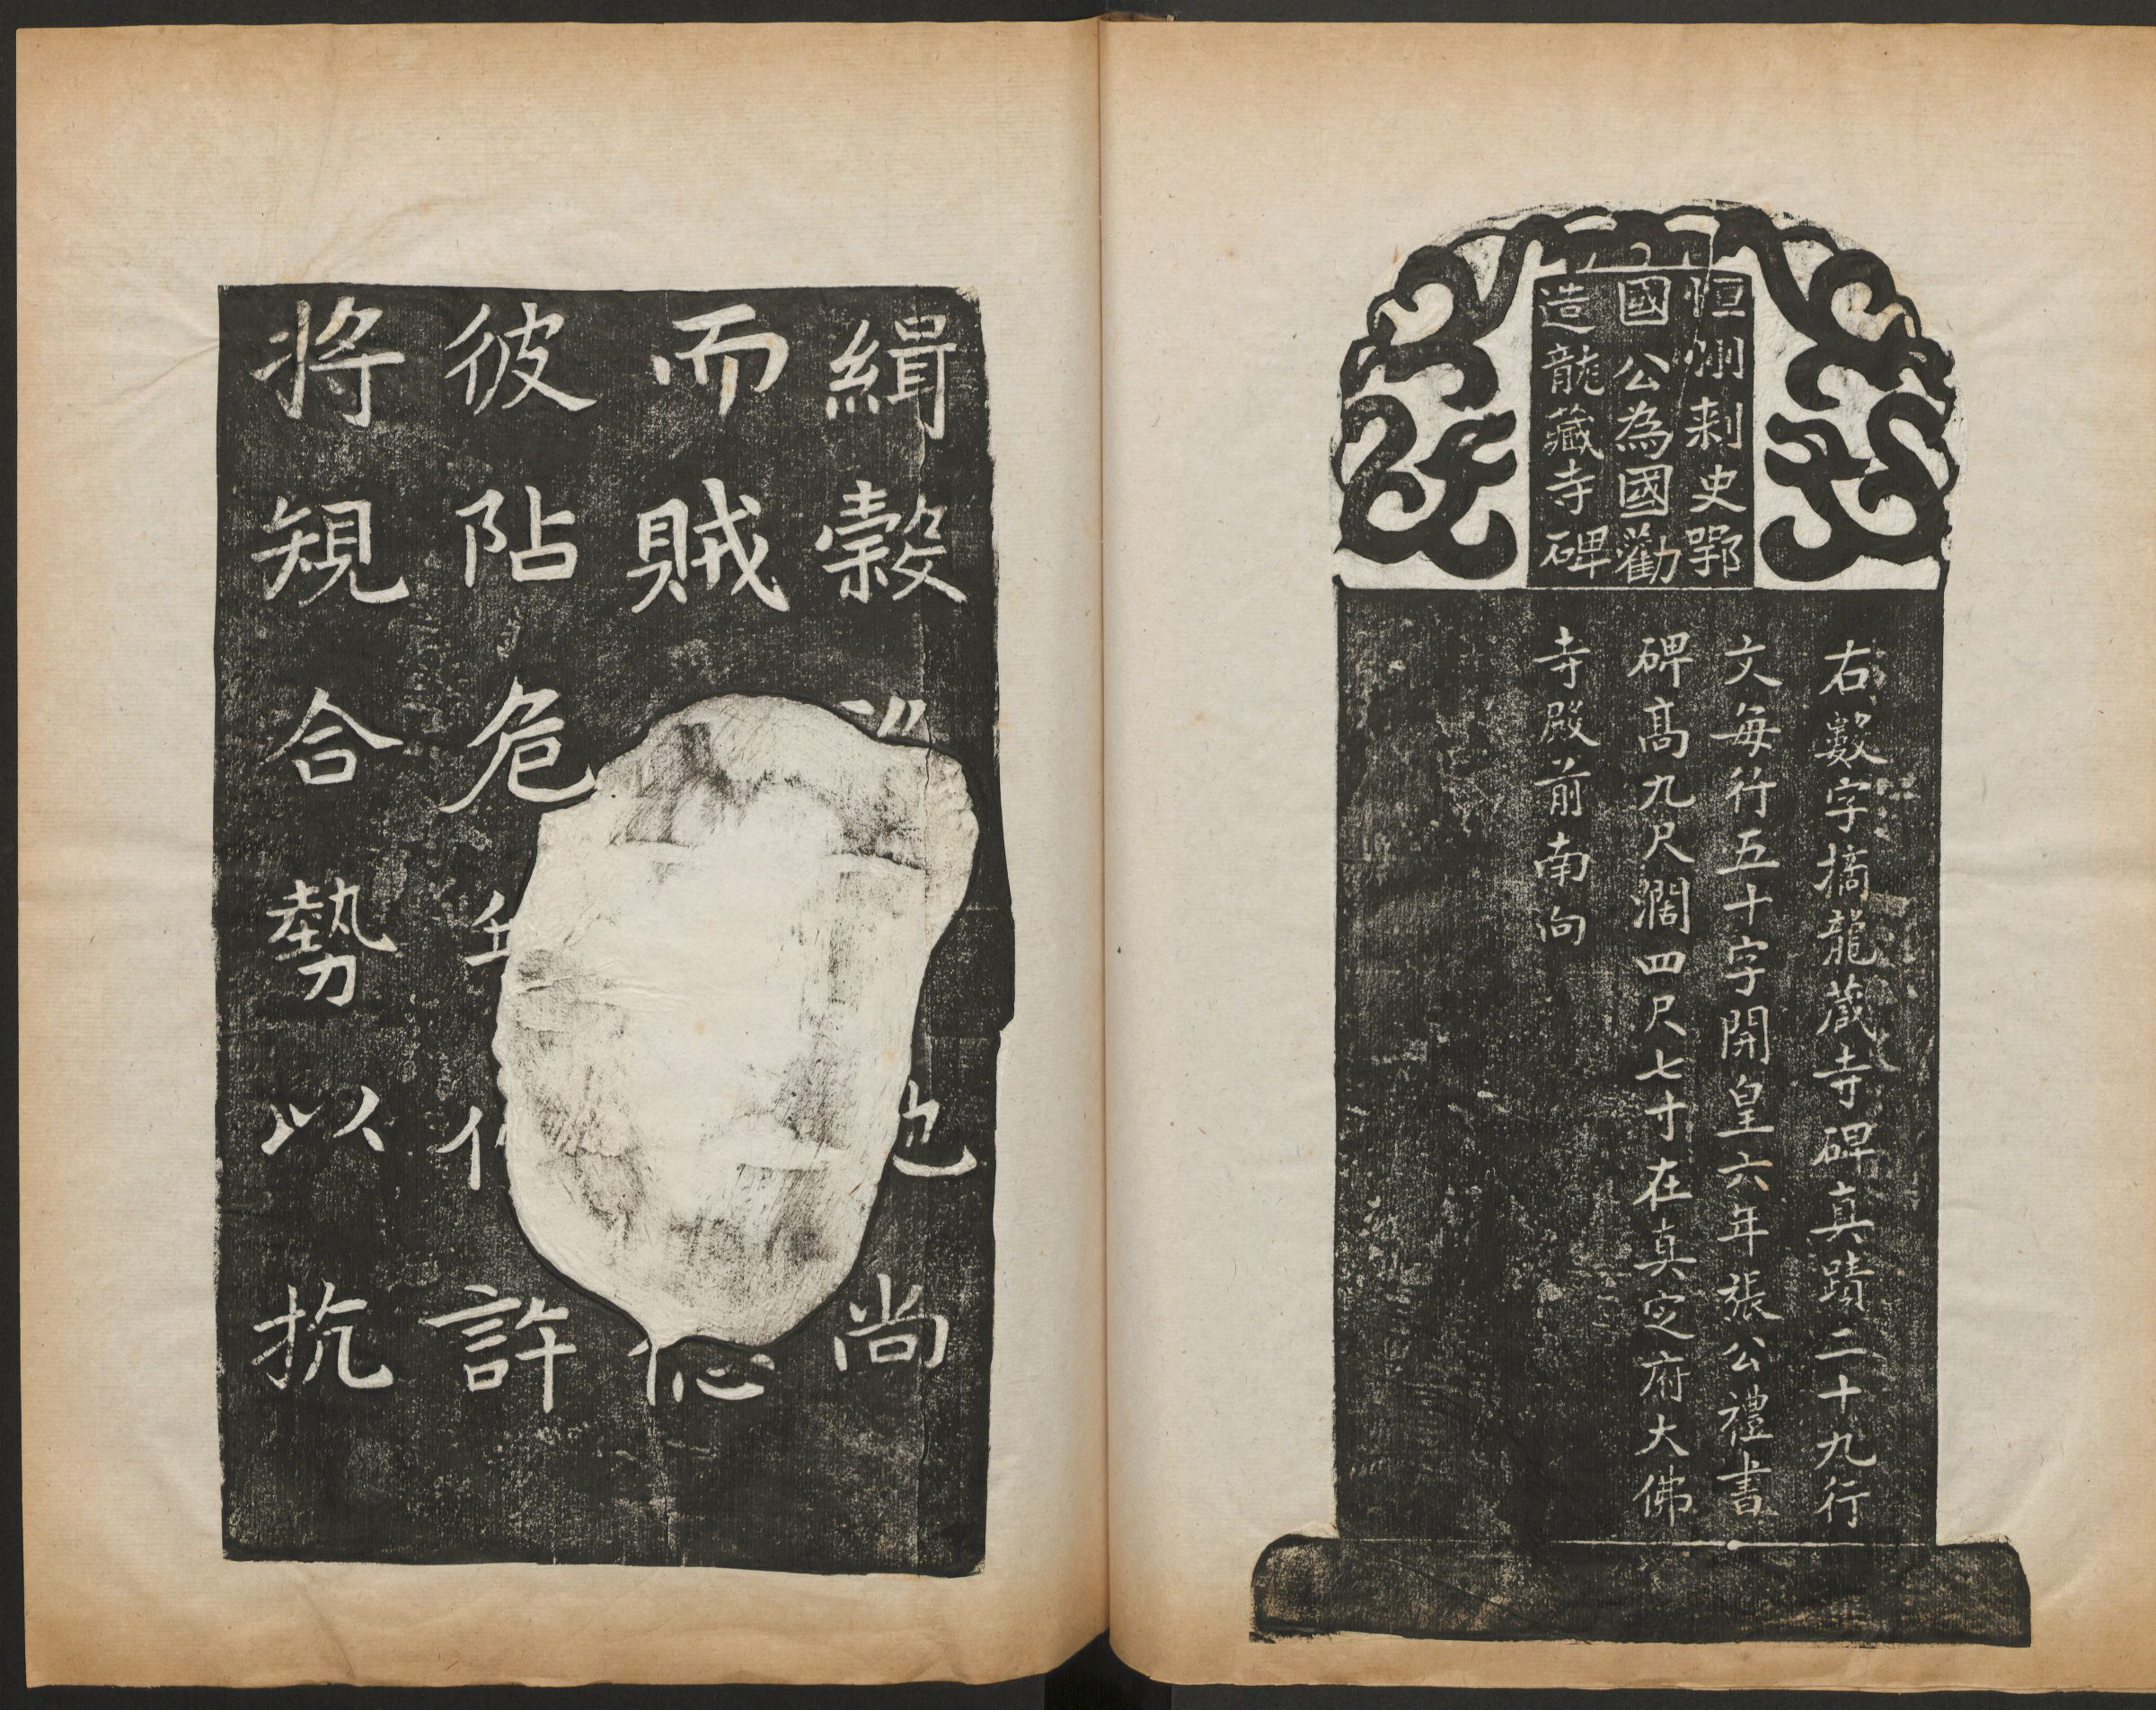 恒州刺史鄂
國公為國勸
造龍藏寺碑
右數字摘龍藏寺碑真蹟二十九行
文每行五十字開皇六年張公禮書
碑高九尺濶四尺七寸在真定府大佛
寺殿前南向
緝穀尚
而賊
彼阽危許
将規合勢以抗